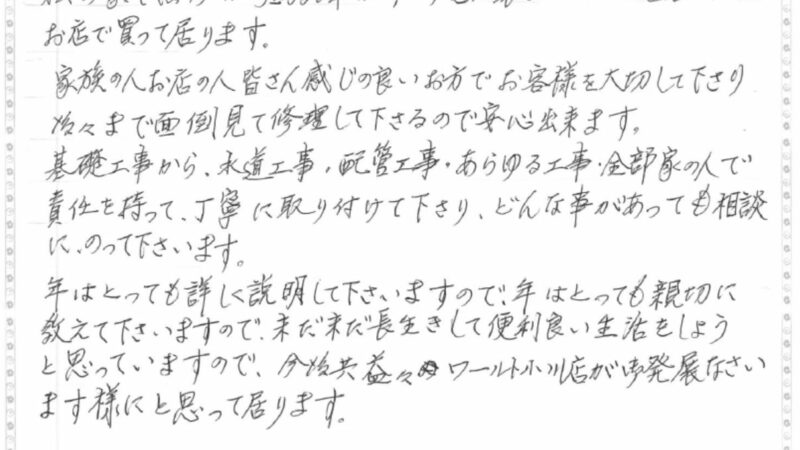 お店で買って居ります。
家族の人お店の人皆さん感じの良いお方でお客様を大切して下さり
々まで面倒見て修理して下さるので安心出来ます。
基礎工事から、水道工事、配管工事・あらゆる工事・全部家の人で
責任を持って、丁寧に取り付けて下さり、どんな事があっても相談
に、のって下さいます。
年はとっても詳しく説明して下さいますので、年はとっても親切に
教えて下さいますので、未だ未だ長生きして便利良い生活をしよう
と思っていますので、今後共益々ワールド小川店が御発展なさい
ます様にと思って居ります。